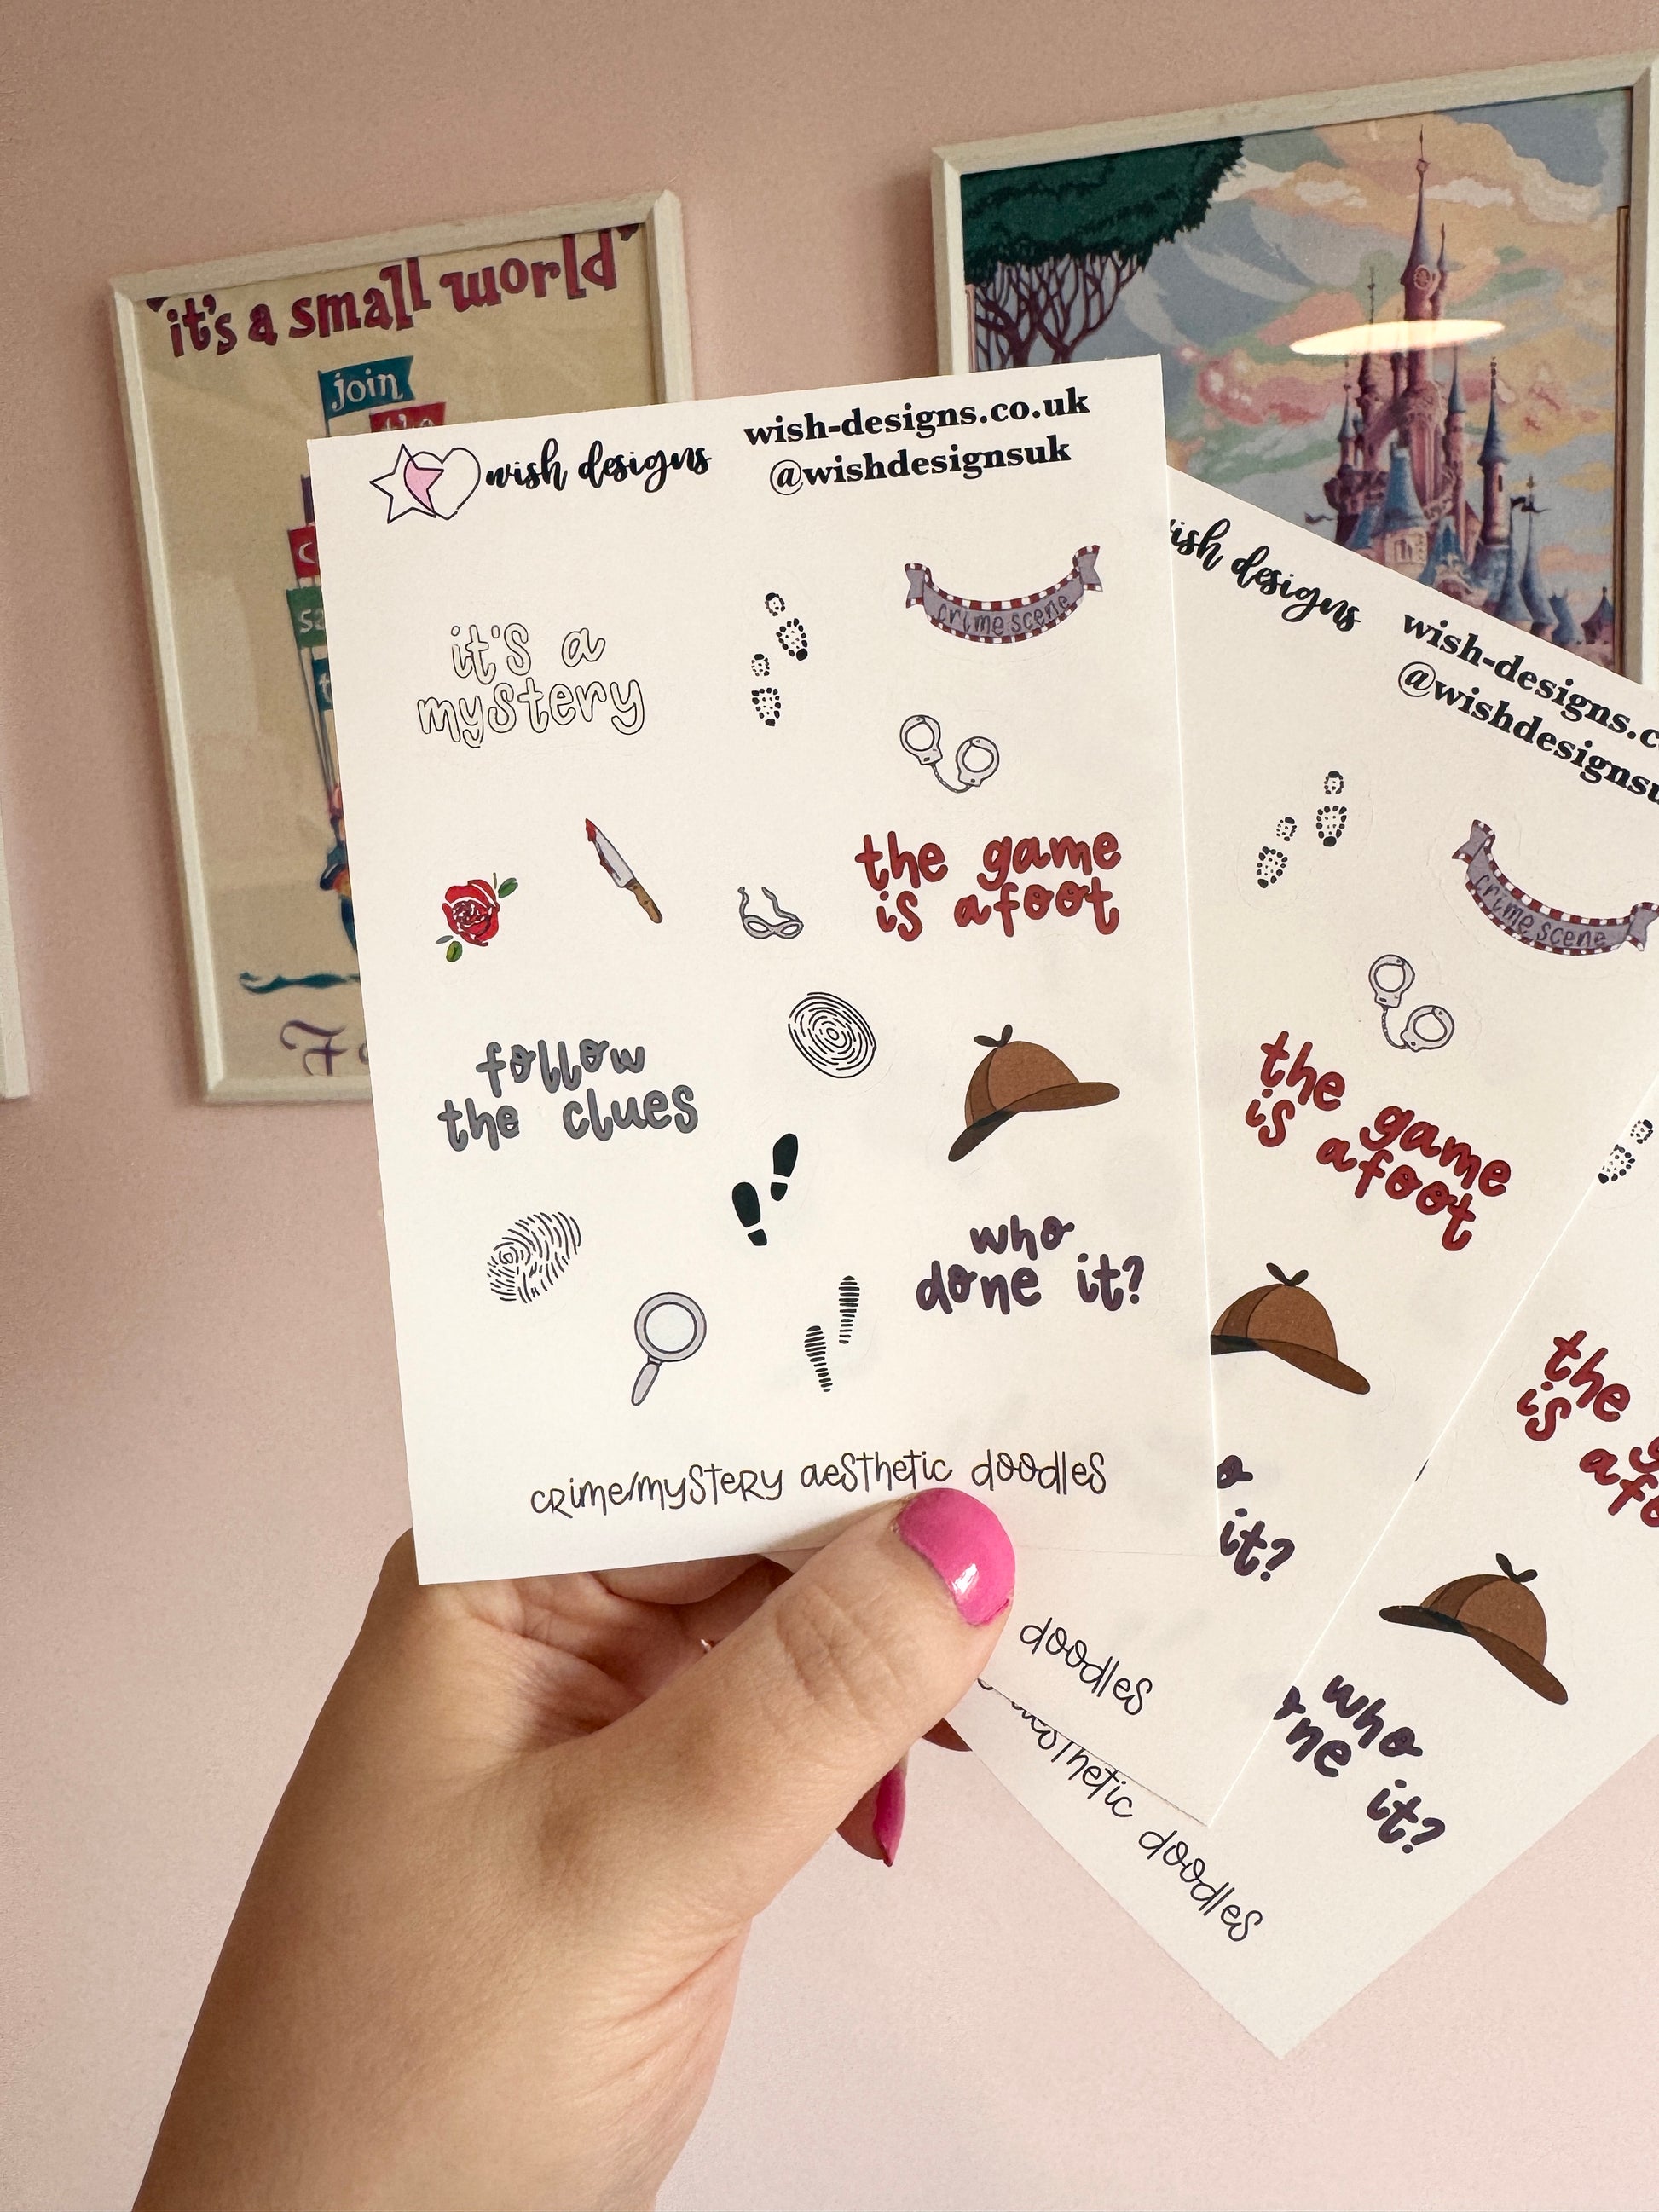 it's a small world
join
the
wish designs
wish-designs.co.uk
@wishdesignsuk
crime scene
it's a
mystery
the game
is afoot
follow
the clues
who
done it?
crime/mystery aesthetic doodles
wish designs
@wishdesignsuk
crime scene
the game
is afoot
it?
doodles
the
is
who
it?
aesthetic doodles